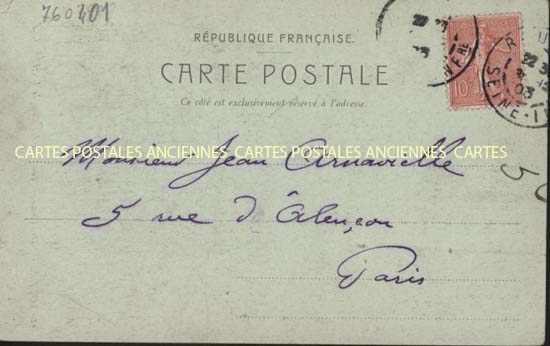 760401
RÉPUBLIQUE FRANÇAISE.
CARTE POSTALE
Ce côté est exclusivement réservé à l'adresse.
10
SEINE-I
03
CARTES POSTALES ANCIENNES CARTES POSTALES ANCIENNES CARTES
Monsieur Jean Arnavielle
5 rue d'Alençon
Paris